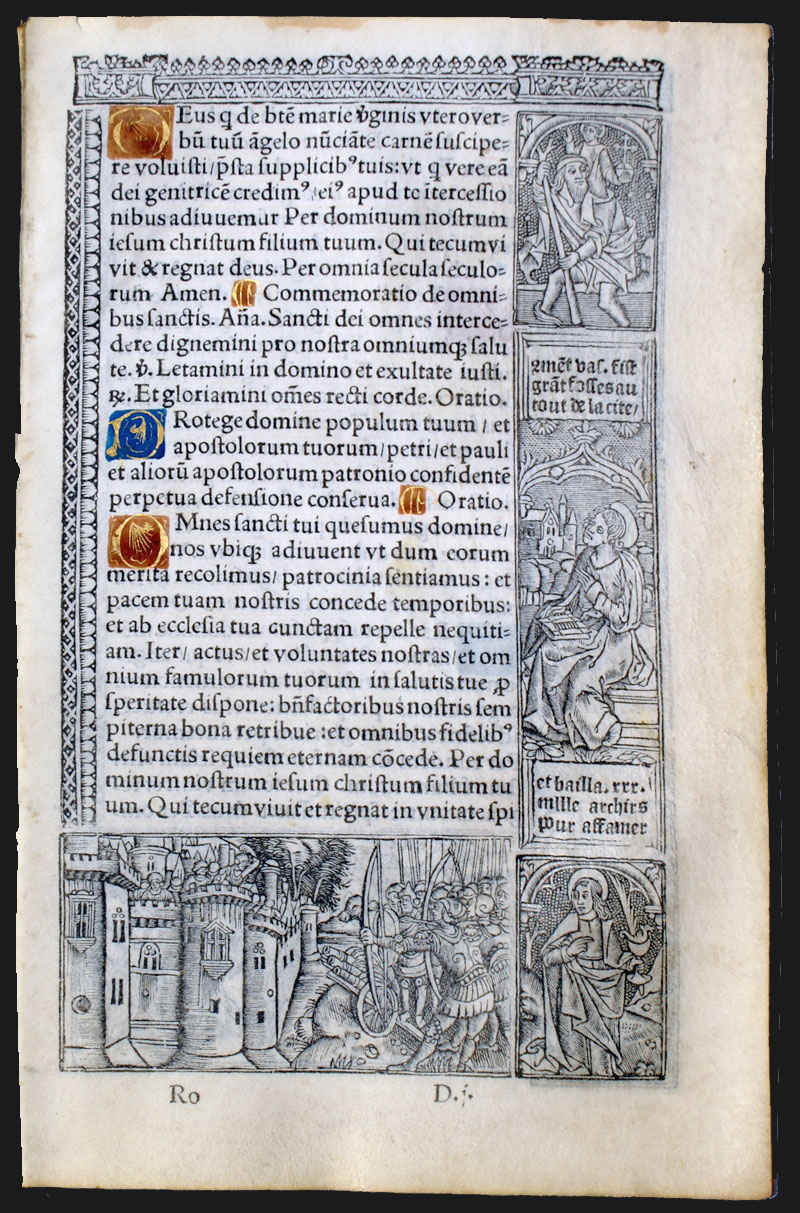 Deus q̄ de btē marie v̄ginis vtero ver=
bū tuū āgelo nūciāte carnē suscipe=
re voluisti / p̄sta supplicibꝰ tuis: vt q̄ vere eā
dei genitricē credimꝰ / eiꝰ apud te ītercessio
nibus adiuuemur Per dominum nostrum
iesum christum filium tuum. Qui tecum vi
vit & regnat deus. Per omnia secula seculo=
rum Amen. Commemoratio de omni=
bus sanctis. Aña. Sancti dei omnes interce=
dere dignemini pro nostra omniumqꝫ salu
te. v̄. Letamini in domino et exultate iusti.
℞. Et gloriamini om̄es recti corde. Oratio.
PRotege domine populum tuum / et
apostolorum tuorum / petri / et pauli
et aliorū apostolorum patronio confidentē
perpetua defensione conserua. Oratio.
OMnes sancti tui quesumus domine /
nos vbiqꝫ adiuuent vt dum eorum
merita recolimus / patrocinia sentiamus : et
pacem tuam nostris concede temporibus:
et ab ecclesia tua cunctam repelle nequiti=
am. Iter / actus / et voluntates nostras / et om
nium famulorum tuorum in salutis tue ꝓ
speritate dispone: bn̄factoribus nostris sem
piterna bona retribue : et omnibus fidelibꝰ
defunctis requiem eternam cōcede. Per do
minum nostrum iesum christum filium tu
um. Qui tecum viuit et regnat in vnitate spi
Ro D.j.
gmēt vas. fist
grāt fosses au
tout de la cite /
et bailla. xxx.
mille archirs
pour affamer